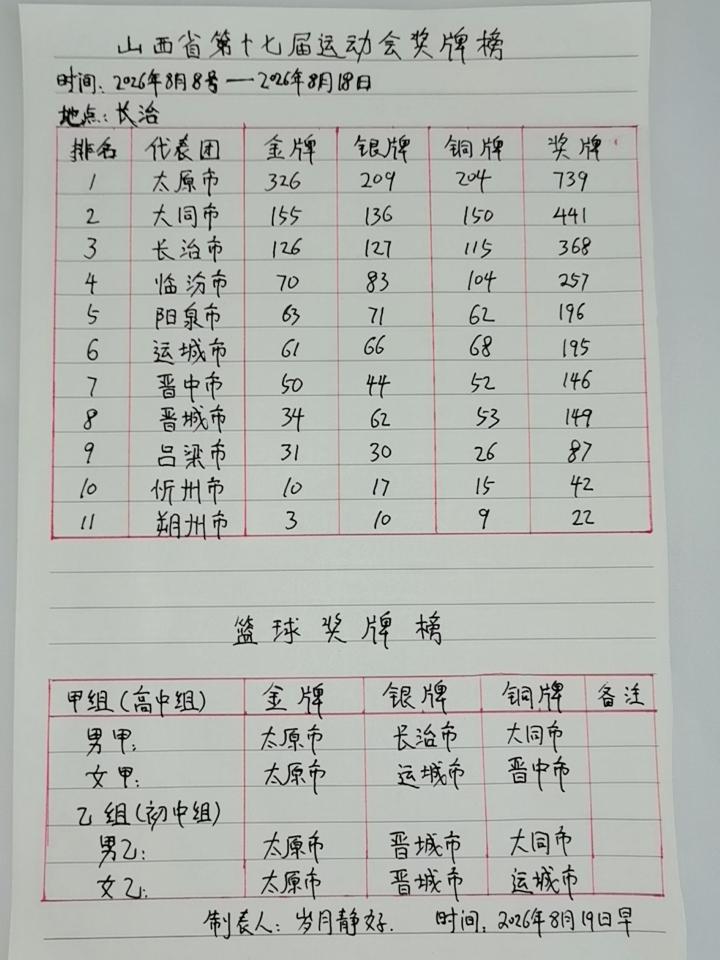 山西省第十七届运动会奖牌榜
时间:2026年8月8号——2026年8月18日
地点:长治
排名 代表团 金牌 银牌 铜牌 奖牌
1 太原市 326 209 204 739
2 大同市 155 136 150 441
3 长治市 126 127 115 368
4 临汾市 70 83 104 257
5 阳泉市 63 71 62 196
6 运城市 61 66 68 195
7 晋中市 50 44 52 146
8 晋城市 34 62 53 149
9 吕梁市 31 30 26 87
10 忻州市 10 17 15 42
11 朔州市 3 10 9 22
篮球奖牌榜
甲组(高中组) 金牌 银牌 铜牌 备注
男甲: 太原市 长治市 大同市
女甲: 太原市 运城市 晋中市
乙组(初中组)
男乙: 太原市 晋城市 大同市
女乙: 太原市 晋城市 运城市
制表人:岁月静好. 时间:2026年8月19日早